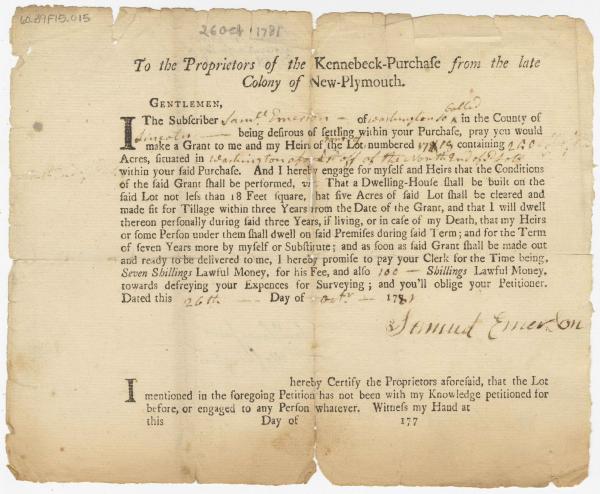 60.89F15.015
26 Oct 1781
To the Proprietors of the Kennebeck-Purchase from the late
Colony of New-Plymouth.
GENTLEMEN,
called
THE Subscriber Samll. Emerson — of Washington so ^ in the County of
Lincoln —— being desirous of settling within your Purchase, pray you would
make a Grant to me and my Heirs of the Lot numbered 17 & 18 containing
Acres, situated in Washington of the North End of
within your said Purchase. And I hereby engage for myself and Heirs that the Conditions
of the said Grant shall be performed, viz That a Dwelling-House shall be built on the
said Lot not less than 18 Feet square, that five Acres of said Lot shall be cleared and
made fit for Tillage within three Years from the Date of the Grant, and that I will dwell
thereon personally during said three Years, if living, or in case of my Death, that my Heirs
or some Person under them shall dwell on said Premises during said Term; and for the Term
of seven Years more by myself or Substitute; and as soon as said Grant shall be made out
and ready to be delivered to me, I hereby promise to pay your Clerk for the Time being,
Seven Shillings Lawful Money, for his Fee, and also 100 — Shillings Lawful Money,
towards defreying your Expences for Surveying; and you'll oblige your Petitioner.
Dated this 26th — Day of Octr — 1781
Samuel Emerson
I hereby Certify the Proprietors aforesaid, that the Lot
mentioned in the foregoing Petition has not been with my Knowledge petitioned for
before, or engaged to any Person whatever. Witness my Hand at
this Day of 177